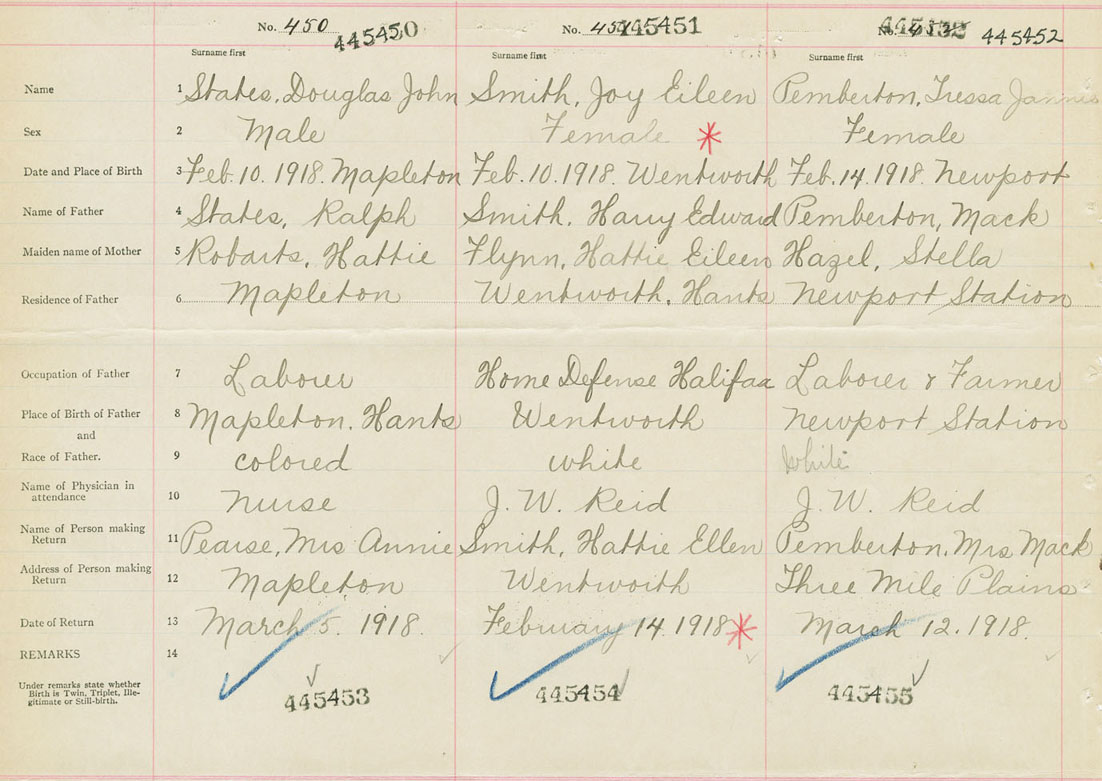 No. 450 445450 No. 451 445451 No. 445452
Surname first Surname first Surname first
Name 1 States, Douglas John Smith, Joy Eileen Pemberton, Tressa
Sex 2 Male Female * Female
Date and Place of Birth 3 Feb. 10. 1918. Mapleton Feb. 10. 1918. Wentworth Feb. 14. 1918. Newport
Name of Father 4 States, Ralph Smith, Harry Edward Pemberton, Mack
Maiden name of Mother 5 Robarts, Hattie Flynn, Hattie Eileen Hazel, Stella
Residence of Father 6 Mapleton Wentworth, Hants Newport Station
Occupation of Father 7 Laborer Home Defense Halifax Laborer & Farmer
Place of Birth of Father 8 Mapleton, Hants Wentworth Newport Station
and
Race of Father. 9 colored white white
Name of Physician in
attendance 10 Nurse J. W. Reid J. W. Reid
Name of Person making
Return 11 Pearse, Mrs Annie Smith, Hattie Ellen Pemberton, Mrs Mack
Address of Person making
Return 12 Mapleton Wentworth Three Mile Plains
Date of Return 13 March 5. 1918. February 14. 1918 * March 12. 1918.
REMARKS 14
Under remarks state whether
Birth is Twin, Triplet, Ille-
gitimate or Still-birth.
445453 445454 445455